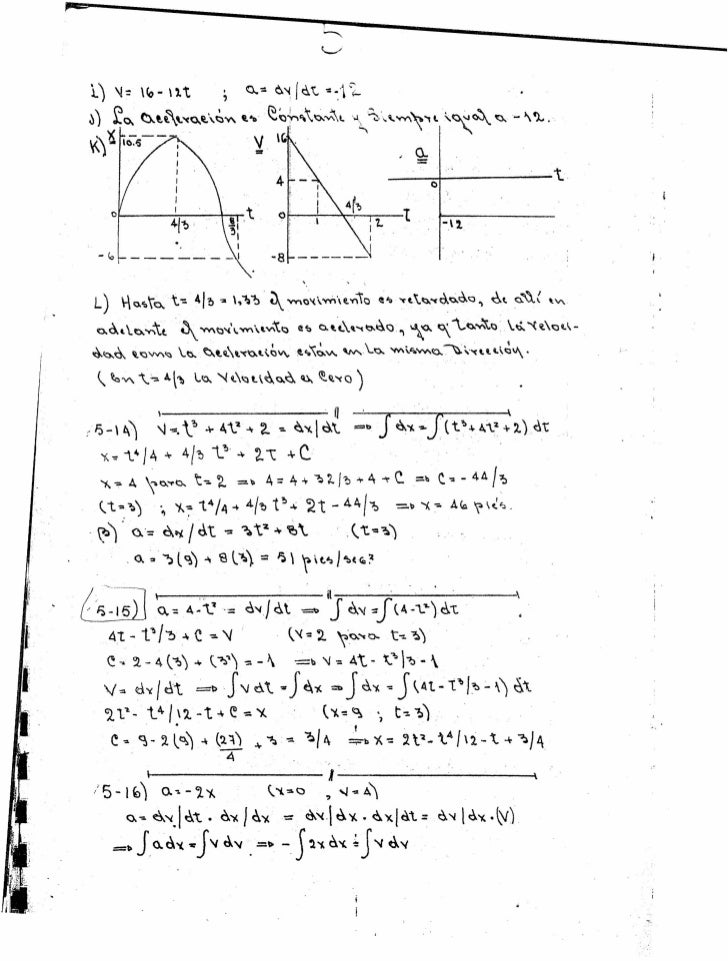 5
i) V= 16-12t ; a= dv/dt =-12
J) La aceleración es Constante y Siempre igual a -12.
K) X 10.5 0 -6 4/3 8/3 t
V 16 4 0 -8 1 4/3 2 t
a 0 -12 t
L) Hasta t= 4/3 = 1,33 el movimiento es retardado, de allí en
adelante el movimiento es acelerado, ya q' tanto la veloci-
dad como la aceleración están en la misma Dirección.
(En t=4/3 la Velocidad es Cero)
5-14) V=t³ + 4t² + 2 = dx/dt ⇒ ∫dx=∫(t³+4t²+2) dt
x= t⁴/4 + 4/3 t³ + 2t + C
x=4 para t=2 ⇒ 4=4+32/3+4+C ⇒ C=-44/3
(t=3) ; x= t⁴/4+4/3 t³+ 2t-44/3 ⇒ x= 46 pies.
B) a= dx/dt = 3t²+8t (t=3)
a = 3(9) + 8(3) = 51 pies/seg²
5-15) a= 4-t² = dv/dt ⇒ ∫dv=∫(4-t²)dt
4t - t³/3 + C = V (V=2 para t=3)
C= 2-4(3)+(3²)=-1 ⇒ V= 4t- t³/3-1
V= dx/dt ⇒ ∫vdt=∫dx ⇒ ∫dx=∫(4t-t³/3-1) dt
2t²- t⁴/12-t+C=x (x=9 ; t=3)
C= 9-2(9) + (27)/4 + 3 = 3/4 ⇒ x= 2t²-t⁴/12-t+3/4
5-16) a=-2x (x=0 , v=4)
a=dv/dt . dx/dx = dv/dx . dx/dt= dv/dx.(V)
⇒ ∫adx=∫vdv ⇒ -∫2xdx=∫vdv